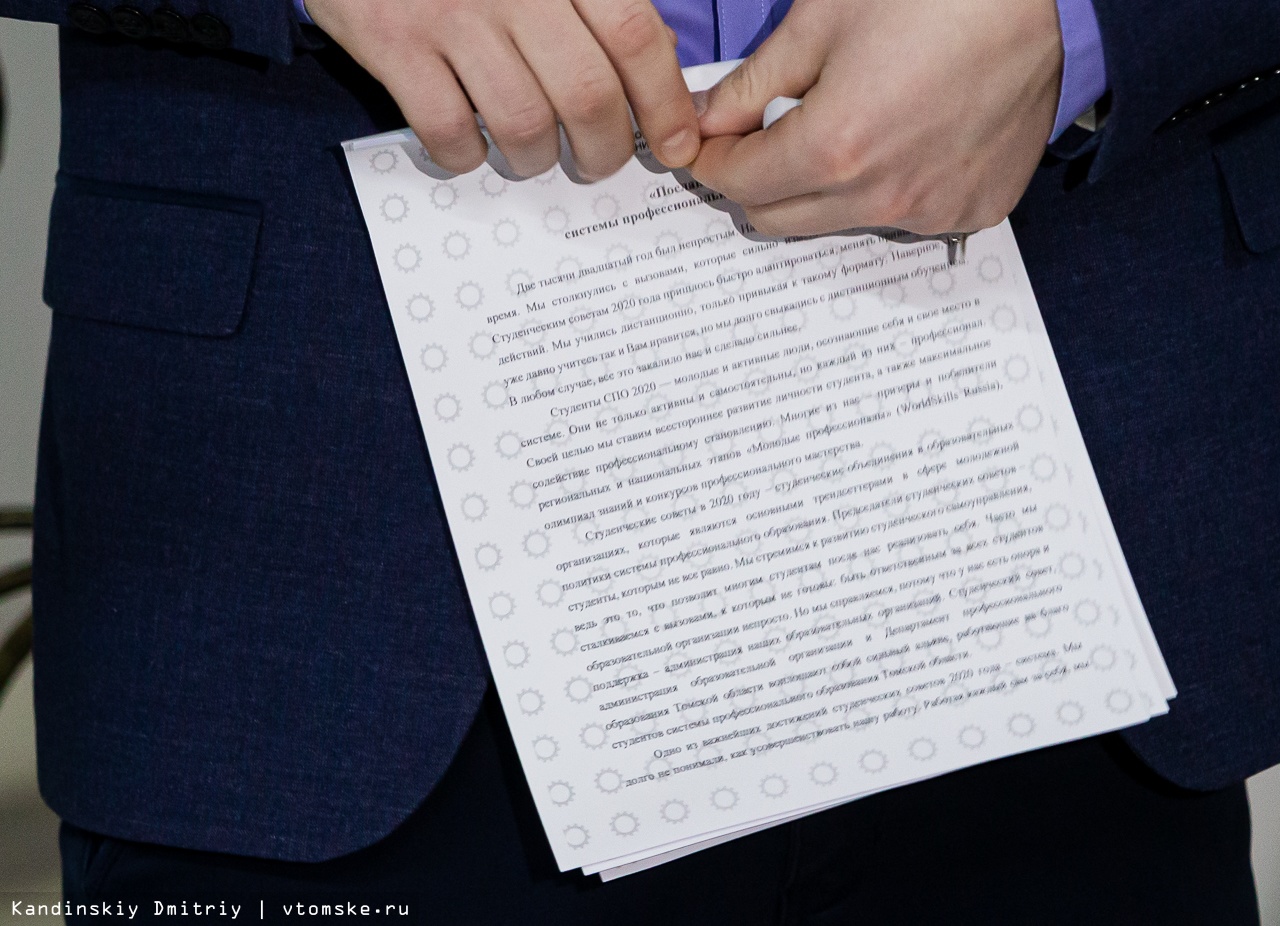 «Послан
системы профессиональн
Две тысячи двадцатый год был непростым.
время. Мы столкнулись с вызовами, которые сильно
Студенческим советам 2020 года пришлось быстро адаптироваться, менять
действий. Мы учились дистанционно, только привыкая к такому формату. Наверное,
уже давно учитесь так и Вам нравится, но мы долго свыкались с дистанционным обучением.
В любом случае, все это закалило нас и сделало сильнее.
Студенты СПО 2020 — молодые и активные люди, осознающие себя и свое место в
системе. Они не только активны и самостоятельны, но каждый из них - профессионал.
Своей целью мы ставим всестороннее развитие личности студента, а также максимальное
содействие профессиональному становлению. Многие из нас – призеры и победители
региональных и национальных этапов «Молодые профессионалы» (WorldSkills Russia),
олимпиад знаний и конкурсов профессионального мастерства.
Студенческие советы в 2020 году – студенческие объединения в образовательных
организациях, которые являются основными трендсеттерами в сфере молодежной
политики системы профессионального образования. Председатели студенческих советов -
студенты, которым не все равно. Мы стремимся к развитию студенческого самоуправления,
ведь это то, что позволит многим студентам после нас реализовать себя. Часто мы
сталкиваемся с вызовами, к которым не готовы: быть ответственным за всех студентов
образовательной организации непросто. Но мы справляемся, потому что у нас есть опора и
поддержка – администрация наших образовательных организаций. Студенческий совет,
администрация образовательной организации и Департамент профессионального
образования Томской области воплощают собой сильный альянс, работающий на благо
студентов системы профессионального образования Томской области.
Одно из важнейших достижений студенческих советов 2020 года – система. Мы
долго не понимали, как усовершенствовать нашу работу. Работая каждый сам за себя, мы
Kandinskiy Dmitriy | vtomske.ru